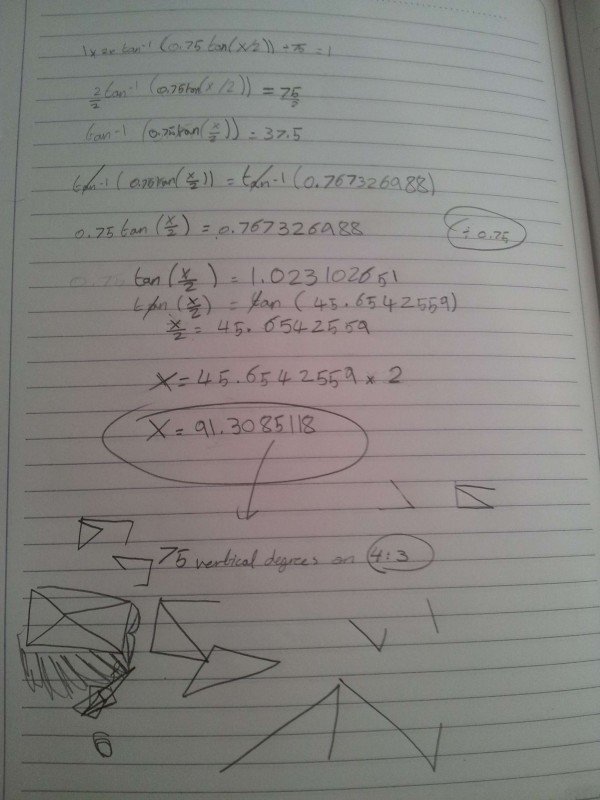 1 x 2x tan⁻¹ (0.75 tan(x/2)) ÷ 75 = 1
2/2 tan⁻¹ (0.75tan(x/2)) = 75/2
tan⁻¹ (0.75tan(x/2)) = 37.5
tan⁻¹ (0.75tan(x/2)) = tan⁻¹ (0.767326988)
0.75 tan(x/2) = 0.767326988 ÷ 0.75
0.75 tan(x/2) = 1.023102651
tan(x/2) = tan (45.6542559)
x/2 = 45.6542559
X = 45.6542559 x 2
X = 91.3085118
75 vertical degrees on 4:3
6